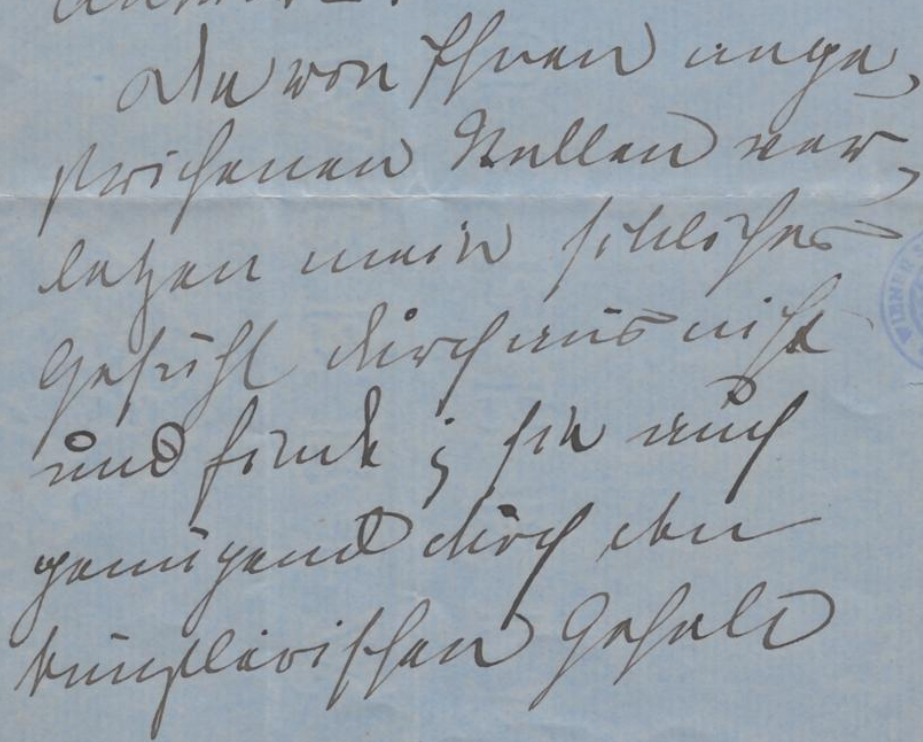 Die von Ihnen ange-
strichenen Stellen ver-
letzen mein sittliches
Gefühl durchaus nicht
und finde ich sie auch
genügend durch den
künstlerischen Gehalt